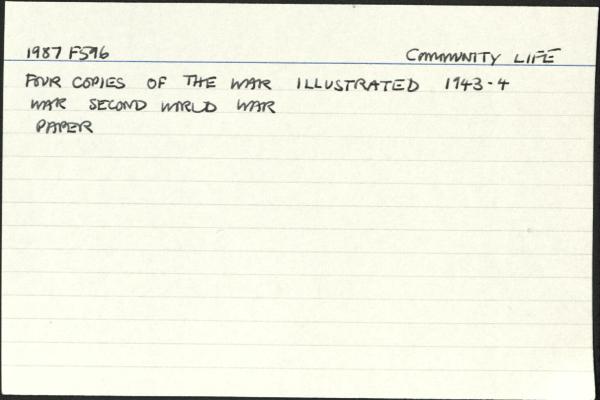 1987 F596 COMMUNITY LIFE
FOUR COPIES OF THE WAR ILLUSTRATED 1943-4
WAR SECOND WORLD WAR
PAPER